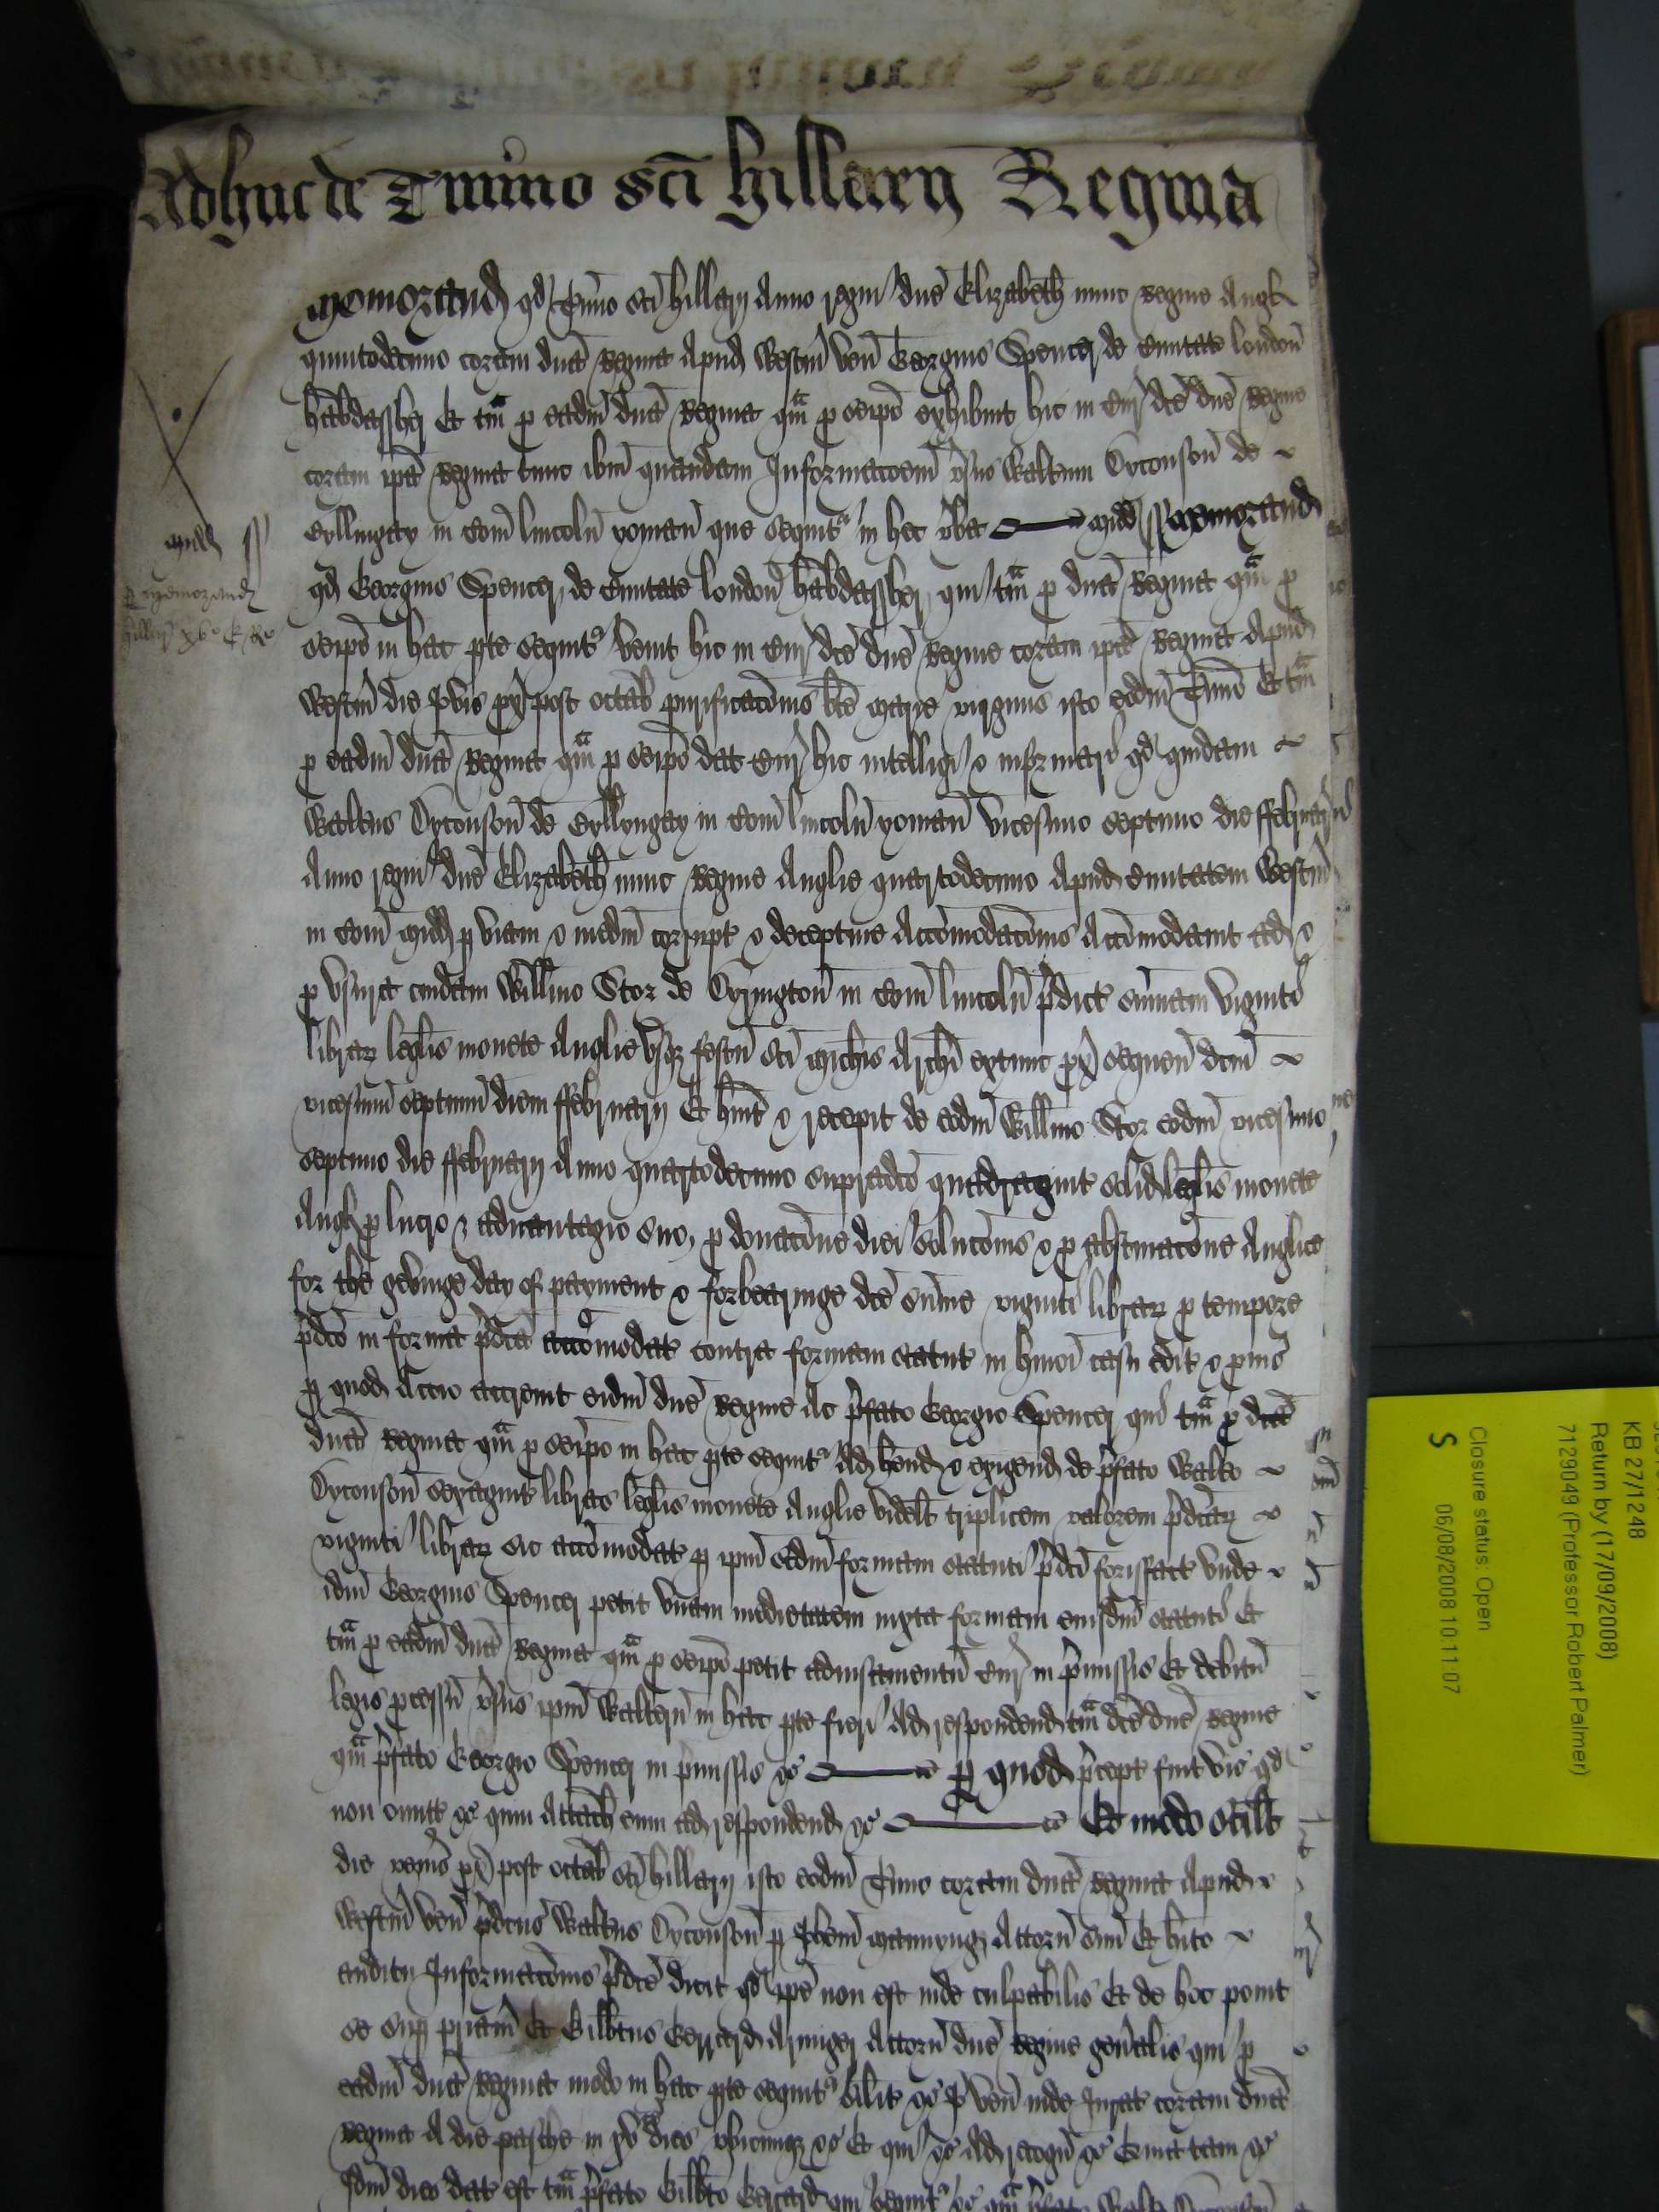 Adhuc de Tmino Sci Hillarij Regina
Memorand qd Tmino Sci Hillarij Anno regni dne Elizabeth nunc Regine Angl
quintodecimo coram dna Regina apud Westm ven Georgius Spencer de Civitate london
habdassher Et tm p eadm dna Regina qm p seipo exhibuit hic in Cur dce dne Regine
coram ipa Regina tunc ibm quandam Informacoem vsus Walterum Dyconson de
Byllingay in Com lincoln yoman que sequit in hec vba midd ss Memorand
qd Georgius Spencer de Civitate london habdassher qui tm p dna Regina qm p
seipo in hac pte sequit venit hic in Cur dce dne Regine coram ipa Regina apud
Westm die Jovis px post octab purificacois bte marie virginis isto eodm Tmino Et tm
p eadm dna Regina qm p seipo dat Cur hic intelligi & informari qd quidam
Waltus Dyconson de Byllyngay in Com lincoln yoman vicesimo septimo die ffebruarij
Anno regni dne Elizabeth nunc Regine Anglie quartodecimo apud Civitatem Westm
in Com midd p viam & medm corrupt & deceptive accomodacois accomodavit ad &
p vsura cuidam Willmo Stor de Dyrington in Com lincoln pdict summam viginti
librar leglis monete Anglie vsq festu sci michis Archi extunc px sequen dcm
vicesimu septimu diem ffebruarij Et huit & recepit de eodm Willmo Stor eodm vicesimo
septimo die ffebruarij Anno quartodecimo supradco quadragint solid leglis monete
Angl p lucro & advantagio suo, p donacone diei solucois & p abstinacone Anglice
for the gevinge day of payment & forbearinge dce summe viginti librar p tempore
pdco in forma pdca accomodat contra formam statut in hmoi casu edit & pvis
p quod Accio accrevit eidm dne Regine ac pfato Georgio Spencer qui tm p dcta
dna Regina qm p seipo in hac pte sequit Ad hend & exigend de pfato Walto
Dyconson sexagint libras leglis monete Anglie videlt triplicem valorem pdcar
viginti librar sic accomodat p ipm scdm formam statuti pdci forisfact vnde
idm Georgius Spencer petit vnam medietatem iuxta formam eiusdm statuti Et
tm p eadm dna Regina qm p seipo petit advisamentu Cur in pmissis Et debitu
legis pcessu vsus ipm Walteru in hac pte fieri Ad respondend tm dce dne Regine
qm pfato Georgio Spencer in pmissis &c p quod pcept fuit vic qd
non omitt &c quin Attach eum ad respondend &c Et modo scilt
die veneris px post octab sci hillarij isto eodm Tmino coram dna Regina apud
Westm ven pdcus Waltus Dyconson p Johem mannyng Attorn suu Et hito
auditu Informacois pdce dicit qd ipe non est inde culpabilis Et de hoc ponit
se sup priam Et Gilbtus Gerrard Armiger Attorn dne Regine genalis qui p
eadm dna Regina modo in hac pte sequit silit &c Jo ven inde Jurat coram dna
Regina A die pasche in xv dies vbicumq &c Et qui &c Ad recogn &c Quia tam &c
Idm dies dat est tm pfato Gilbto Gerrard qui sequit &c qm pfato Walto Dyconson
midd ss
p memorand
hillar xv E Re
KB 27/1248
Return by (17/09/2008)
7129049 (Professor Robert Palmer)
Closure status: Open
S 06/08/2008 10:11:07